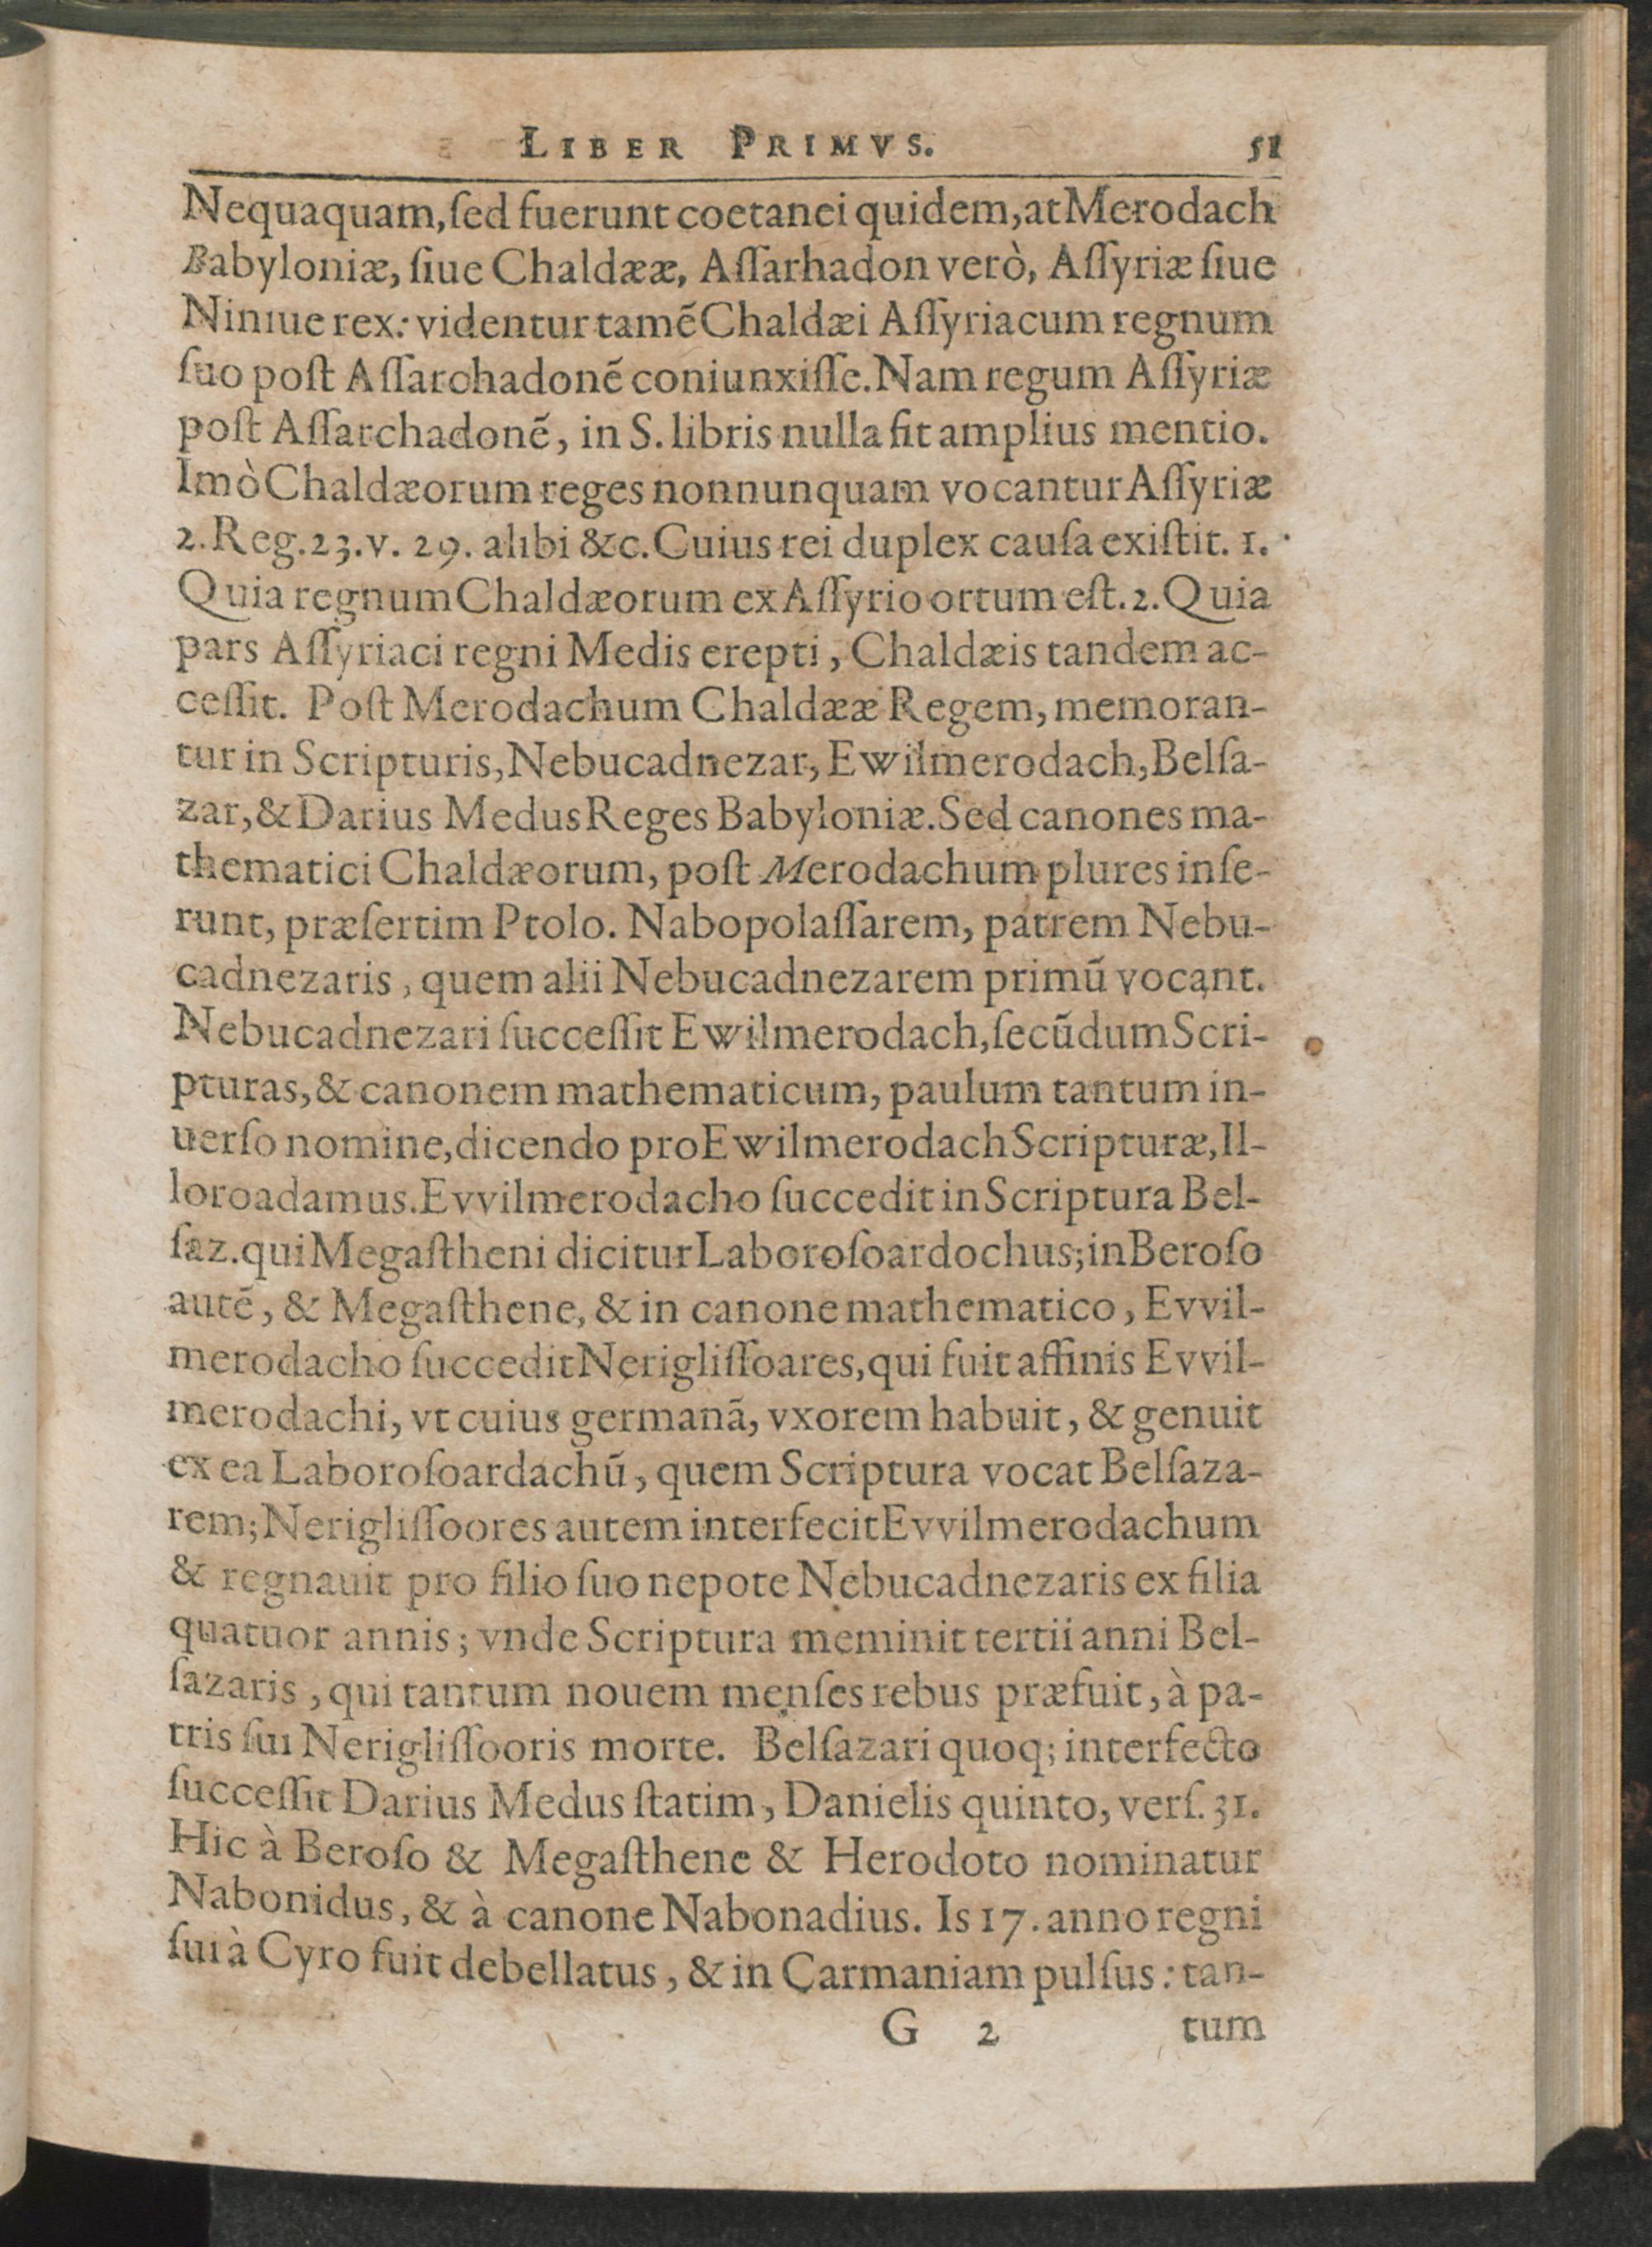 LIBER PRIMVS. 51
Nequaquam, ſed fuerunt coetanei quidem, at Merodach
Babyloniæ, ſiue Chaldææ, Aſſarhadon verò, Aſſyriæ ſiue
Niniue rex: videntur tamẽ Chaldæi Aſſyriacum regnum
ſuo poſt Aſſarchadonẽ coniunxiſſe. Nam regum Aſſyriæ
poſt Aſſarchadonẽ, in S. libris nulla fit amplius mentio.
Imò Chaldæorum reges nonnunquam vocantur Aſſyriæ
2. Reg. 23. v. 29. alibi &c. Cuius rei duplex cauſa exiſtit. 1.
Quia regnum Chaldæorum ex Aſſyrio ortum eſt. 2. Quia
pars Aſſyriaci regni Medis erepti, Chaldæis tandem ac-
ceſſit. Poſt Merodachum Chaldææ Regem, memoran-
tur in Scripturis, Nebucadnezar, Ewilmerodach, Belſa-
zar, & Darius Medus Reges Babyloniæ. Sed canones ma-
thematici Chaldæorum, poſt Merodachum plures inſe-
runt, præſertim Ptolo. Nabopolaſſarem, patrem Nebu-
cadnezaris, quem alii Nebucadnezarem primũ vocant.
Nebucadnezari ſucceſſit Ewilmerodach, ſecũdum Scri-
pturas, & canonem mathematicum, paulum tantum in-
uerſo nomine, dicendo pro Ewilmerodach Scripturæ, Il-
loroadamus. Evvilmerodacho ſuccedit in Scriptura Bel-
ſaz. qui Megaſtheni dicitur Laboroſoardochus; in Beroſo
autẽ, & Megaſthene, & in canone mathematico, Evvil-
merodacho ſuccedit Nerigliſſoares, qui fuit affinis Evvil-
merodachi, vt cuius germanã, vxorem habuit, & genuit
ex ea Laboroſoardachũ, quem Scriptura vocat Belſaza-
rem; Nerigliſſoores autem interfecit Evvilmerodachum
& regnauit pro filio ſuo nepote Nebucadnezaris ex filia
quatuor annis; vnde Scriptura meminit tertii anni Bel-
ſazaris, qui tantum nouem menſes rebus præfuit, à pa-
tris ſui Nerigliſſooris morte. Belſazari quoq; interfecto
ſucceſſit Darius Medus ſtatim, Danielis quinto, verſ. 31.
Hic à Beroſo & Megaſthene & Herodoto nominatur
Nabonidus, & à canone Nabonadius. Is 17. anno regni
ſui à Cyro fuit debellatus, & in Carmaniam pulſus: tan-
G 2 tum